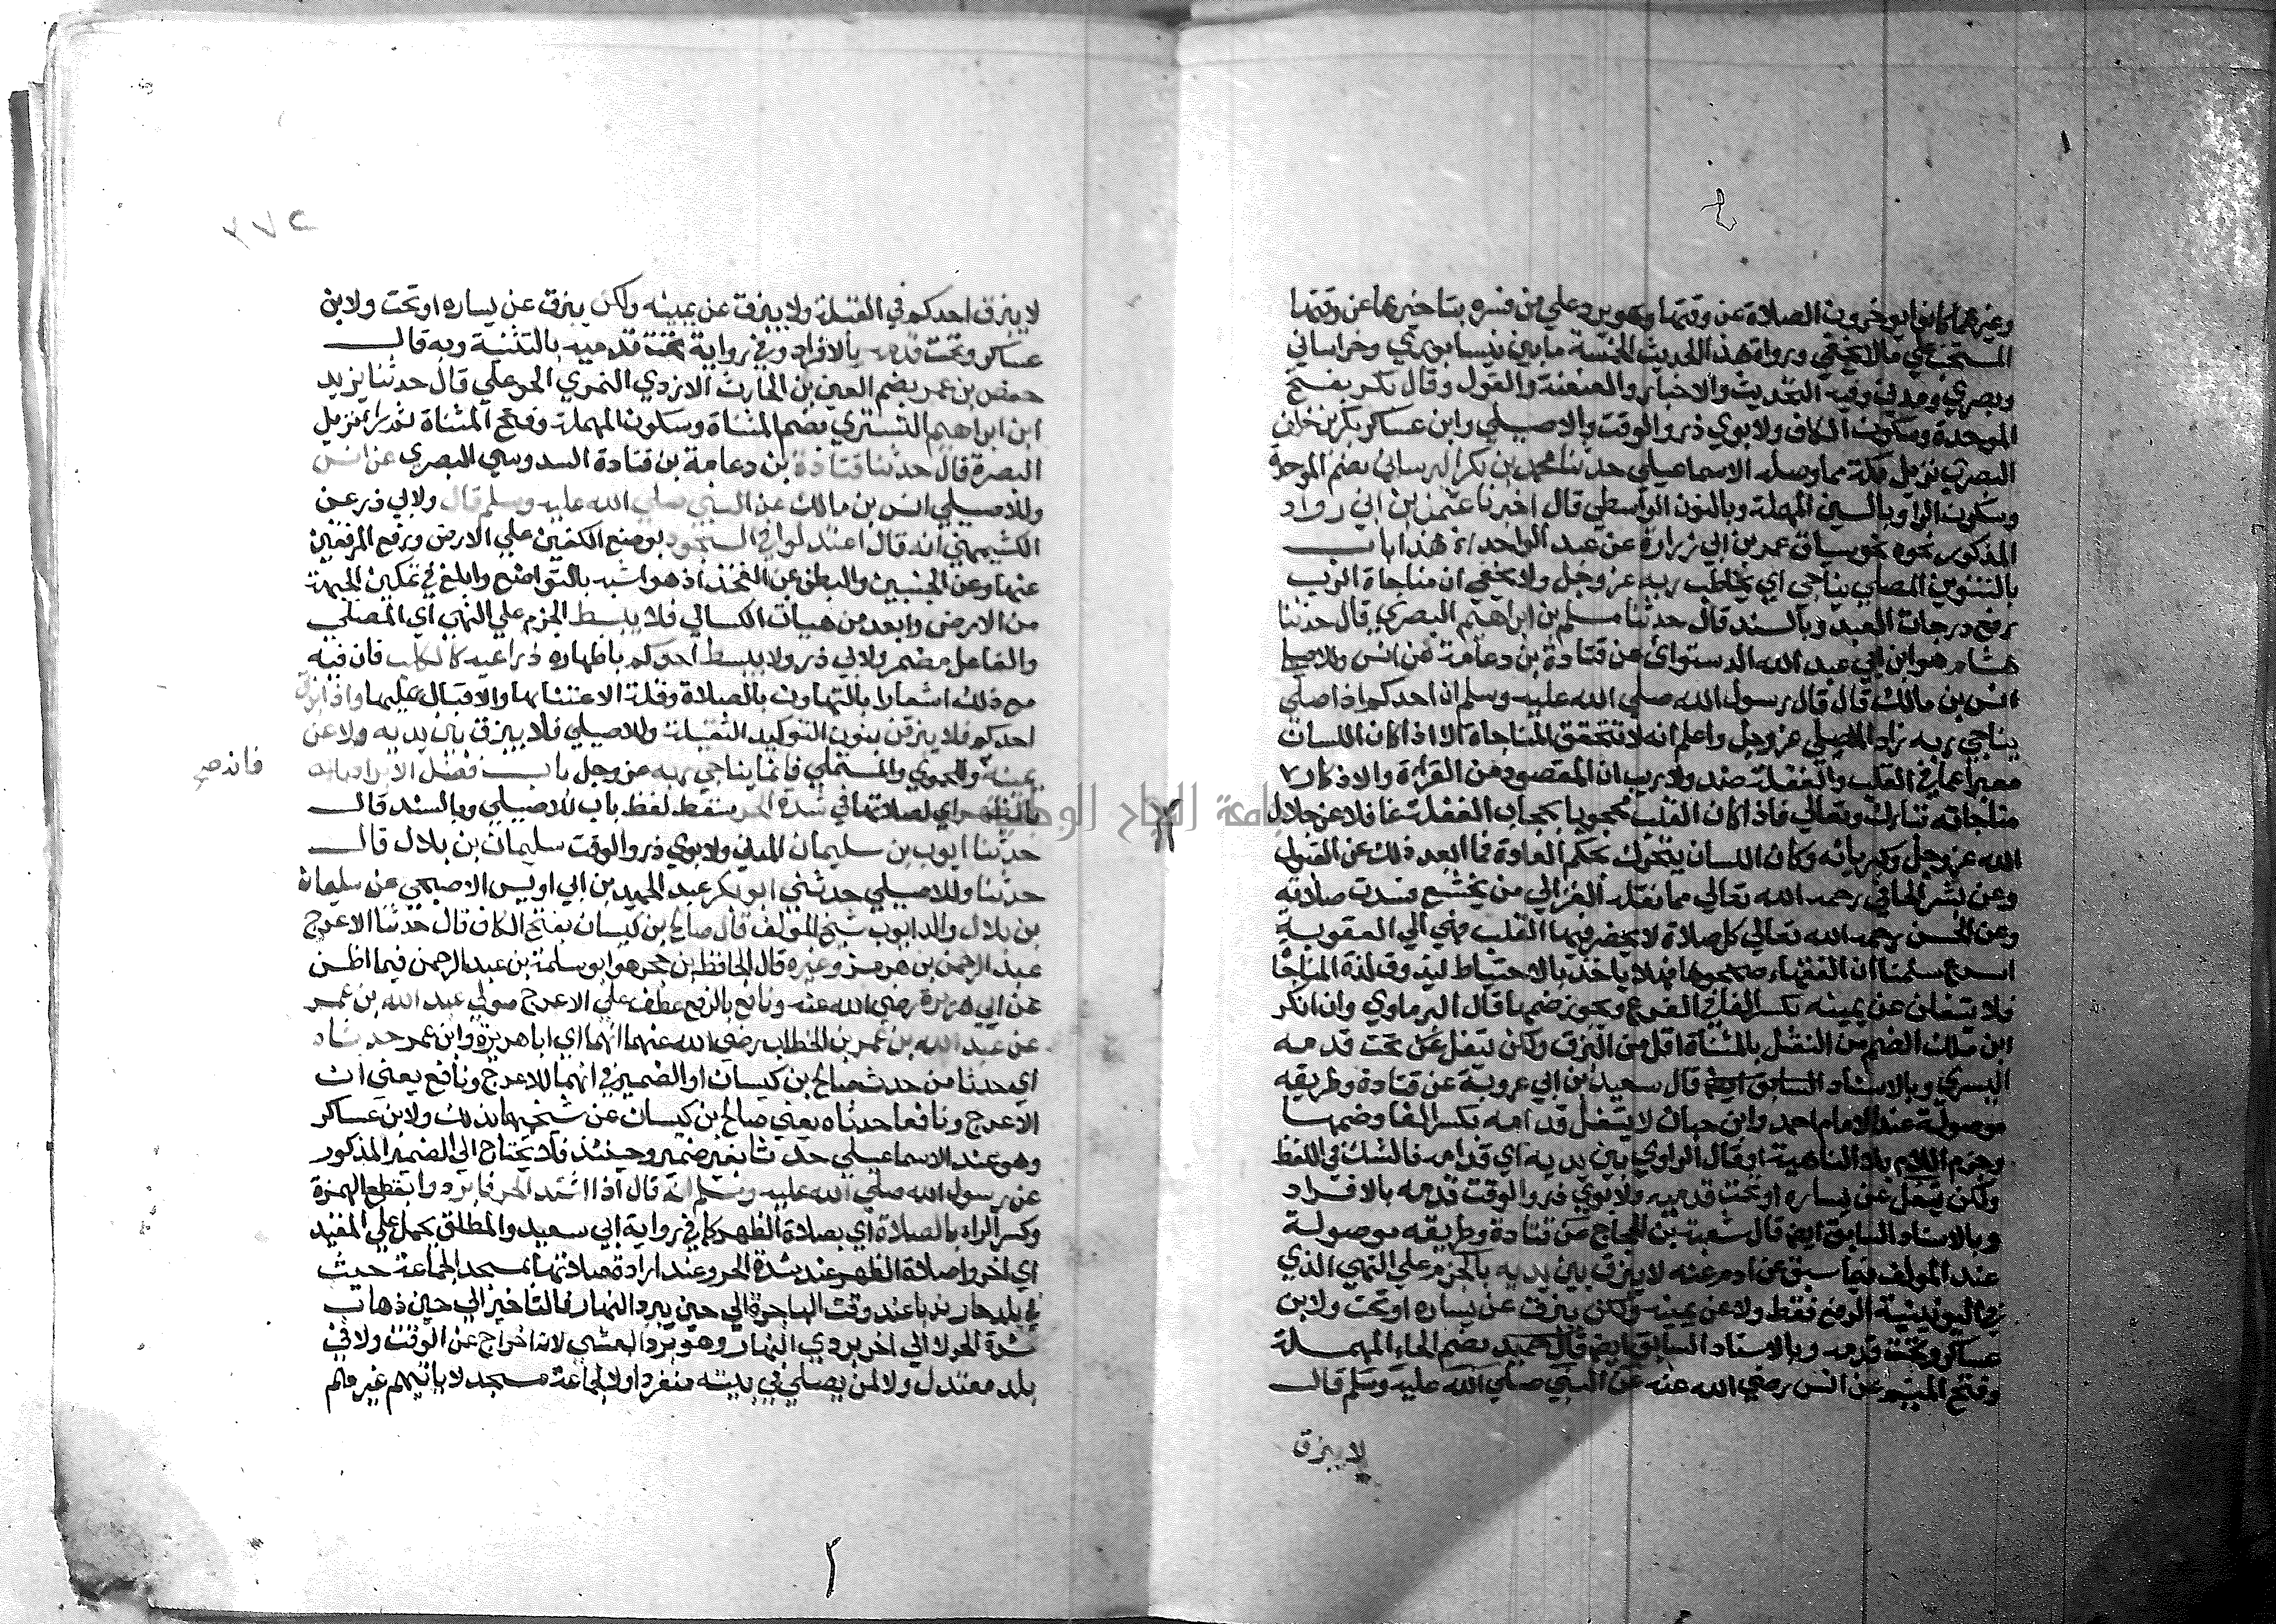 وغيرهما كانوا يؤخرون الصلاة عن وقتها وهو يرد علي من فسره بتاخيرها عن وقتها
المستحب علي مالا يخفي ورواة هذا الحديث الخمسة ما بين نيسابوري وخراساني
وبصري ومدني وفيه التحديث والاخبار والعنعنة والقول وقال بكر بفتح
الموحدة وسكون الكاف ولابوي ذر والوقت والاصيلي وابن عساكر بكر بن خلف
البصري نزيل مكة مما وصله الاسماعيلي حدثنا محمد بن بكر البرساني بضم الموحدة
وسكون الراو بالسين المهملة وبالنون الواسطي قال اخبرنا عثمن بن ابي رواد
المذكور نحوه نحو سياق عمر بن ابي زرارة عن عبد الواحد هذا باب
بالتنوين المصلي يناجي اي يخاطب ربه عز وجل ولا يخفي ان مناجاة الرب
رفع درجات العبد وبالسند قال حدثنا مسلم بن ابراهيم البصري قال حدثنا
هشام هو ابن ابي عبد الله الدستواي عن قتادة بن دعامة عن انس وللاصيلي
انس بن مالك قال قال رسول الله صلي الله عليه وسلم ان احدكم اذا صلي
يناجي ربه زاد الاصيلي عز وجل واعلم انه لا تتحقق المناجاة الا اذا كان اللسان
معبرا عما في القلب والغفلة ضد ولا ريب ان المقصود من القراءة والاذكار
مناجاته تبارك وتعالي فاذا كان القلب محجوبا بحجاب الغفلة غافلا عن جلال
الله عز وجل وكبريائه وكان اللسان يتحرك بحكم العادة فما ابعد ذلك عن القبول
وعن بشر الحافي رحمه الله تعالي مما نقله الغزالي من لم يخشع فسدت صلاته
وعن الحسن رحمه الله تعالي كل صلاة لا يحضر فيها القلب فهي الي العقوبة
اسرع سلمنا ان الفقهاء صححوها فهلا ياخذ بالاحتياط ليذوق لذة المناجاة
فلا يتفلن عن يمينه بكسر الفا في الفرع ويجوز ضمها قال البرماوي وان انكر
ابن مالك الضم من التفل بالمثناة اقل من البزق ولكن ليتفل عن تحت قدمه
اليسري وبالاسناد السابق ايضا قال سعيد بن ابي عروبة عن قتادة وطريقه
موصولة عند الامام احمد وابن حبان لا يتفل قدامه بكسر الفا وضمها
وجزم اللام بلا الناهية او قال الراوي بين يديه اي قدامه فالشك في اللفظ
ولكن يتفل عن يساره او تحت قدميه ولابوي ذر والوقت قدمه بالافراد
وبالاسناد السابق ايضا قال شعبة بن الحجاج عن قتادة وطريقه موصولة
عند المولف فيما سبق عن ادم عنه لا يبزق بين يديه بالجزم علي النهي الذي
في اليونينية الرفع فقط ولا عن يمينه ولكن يبزق عن يساره او تحت ولابن
عساكر وتحت قدمه وبالاسناد السابق ايضا قال حميد بضم الحاء المهملة
وفتح الميم عن انس رضي الله عنه عن النبي صلي الله عليه وسلم قال
لا يبزق
٢٧٢
لا يبزق احدكم في القبلة ولا يبزق عن يمينه ولكن يبزق عن يساره او تحت ولابن
عساكر وتحت قدمه بالافراد وفي رواية تحت قدميه بالتثنية وبه قال
حفص بن عمر بضم العين بن الحارث الازدي النمري الحوضي قال حدثنا يزيد
ابن ابراهيم التستري بضم المثناة وسكون المهملة وفتح المثناة ثم را نزيل
البصرة قال حدثنا قتادة بن دعامة بن قتادة السدوسي البصري عن انس
وللاصيلي انس بن مالك عن النبي صلي الله عليه وسلم قال ولابي ذر عن
الكشميهني انه قال اعتدلوا في السجود بوضع الكفين علي الارض ورفع المرفقين
عنها وعن الجنبين والبطن عن الفخذ اذ هو اشبه بالتواضع وابلغ في تمكين الجبهة
من الارض وابعد من هيات الكسالي فلا يبسط بالجزم علي النهي اي المصلي
والفاعل مضمر ولابي ذر ولا يبسط احدكم باظهاره ذراعيه كالكلب فان فيه
مع ذلك اشعارا بالتهاون بالصلاة وقلة الاعتناء بها والاقبال عليها واذا بزق
احدكم فلا يبزقن بنون التوكيد الثقيلة وللاصيلي فلا يبزق بين يديه ولا عن
يمينه وللحموي والمستملي فانما يناجي ربه عز وجل باب فضل الابراد
فانه صح
بالظهر اي لصلاتها في شدة الحر سقط لفظ باب للاصيلي وبالسند قال
حدثنا ايوب بن سليمان المدني ولابوي ذر والوقت سليمان بن بلال قال
حدثنا وللاصيلي حدثني ابو بكر عبد الحميد بن ابي اويس الاصبحي عن سليمان
بن بلال والد ايوب شيخ المولف قال صالح بن كيسان بفتح الكاف قال حدثنا الاعرج
عبد الرحمن بن هرمز وغيره قال الحافظ بن حجر هو ابو سلمة بن عبد الرحمن فيما اظن
عن ابي هريرة رضي الله عنه ونافع بالرفع عطف علي الاعرج مولي عبد الله بن عمر
عن عبد الله بن عمر بن الخطاب رضي الله عنهما انهما اي ابا هريرة وابن عمر حدثاه
اي حدثا من حدث صالح بن كيسان او الضمير في انهما للاعرج ونافع يعني ان
الاعرج ونافعا حدثاه يعني صالح بن كيسان عن شيخيهما بذلك ولابن عساكر
وهو عند الاسماعيلي حدثا بغير ضمير وحينئذ فلا يحتاج الي الضمير المذكور
عن رسول الله صلي الله عليه وسلم انه قال اذا اشتد الحر فابردوا بقطع الهمزة
وكسر الراء بالصلاة اي بصلاة الظهر كما في رواية ابي سعيد والمطلق يحمل علي المقيد
اي اخروا صلاة الظهر عند شدة الحر وعند ارادة صلاتها بمسجد الجماعة حيث
في بلد حار ندبا عند وقت الهاجرة الي حين يبرد النهار فالتاخير الي حين ذهاب
شدة الحر لا الي اخر بردي النهار وهو برد العشي لانه اخراج عن الوقت ولا في
بلد معتدل ولا لمن يصلي في بيته منفردا ولا لجماعة مسجد لا ياتيهم غيرهم
جامعة النجاح الوطنية